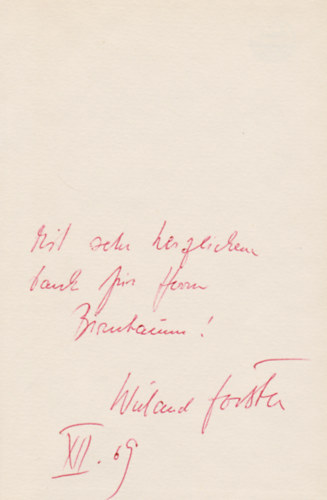 Mit sehr herzlichem
Dank für Herrn
Birnbaum!
Wieland Förster
XII. 69